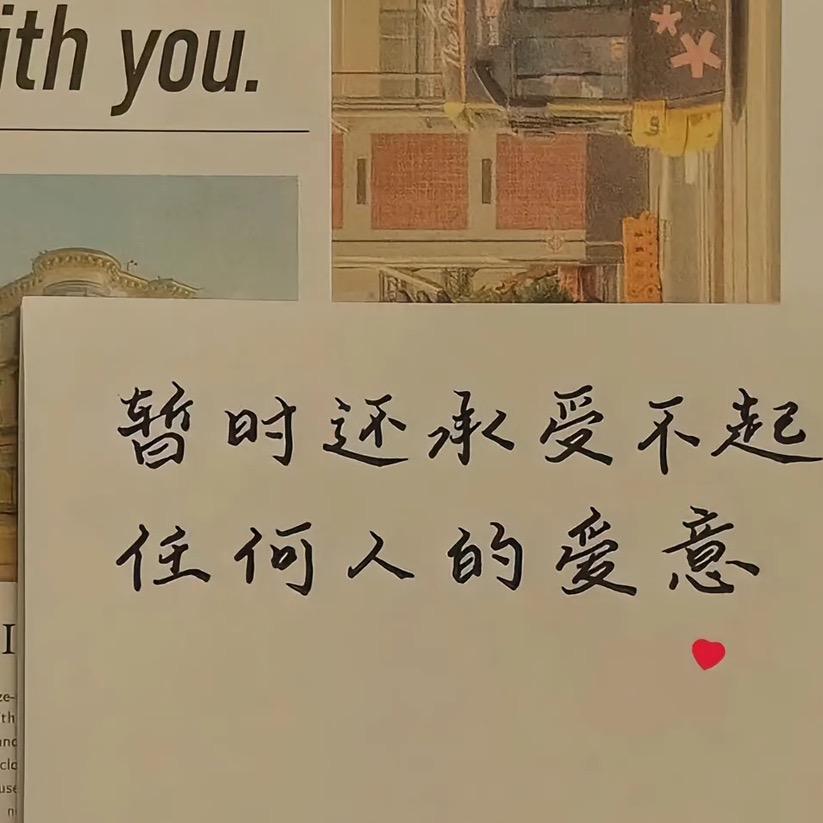 ith you.
暂时还承受不起
任何人的爱意
I
ze-
th
and
clo
use
n